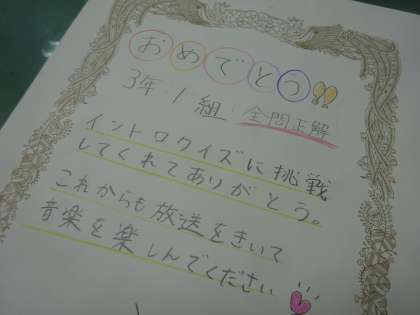 おめでとう!!
3年1組 全問正解
イントロクイズに挑戦
してくれてありがとう。
これからも放送をきいて
音楽を楽しんでください